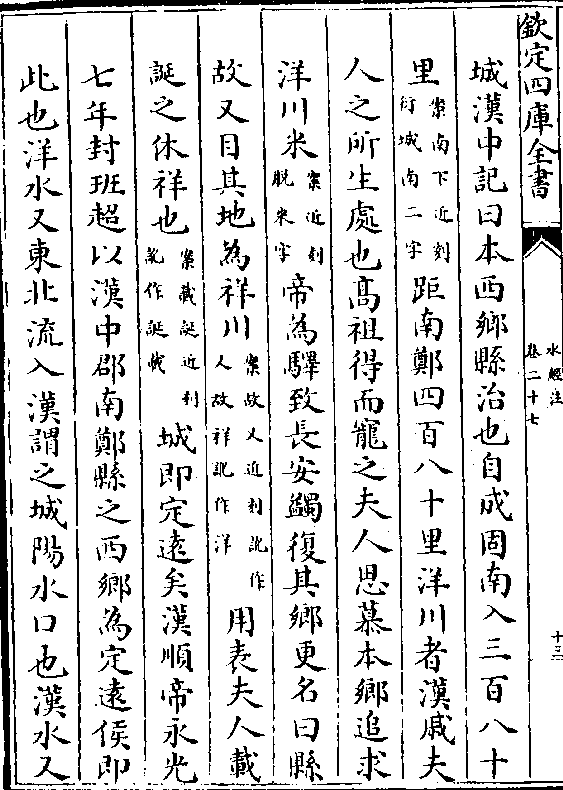 欽定四庫全書
水經注
卷二十七
十三
城漢中記曰本西鄉縣治也自成固南入三百八十
里案南下近刻衍城南二字距南鄭四百八十里洋川者漢戚夫
人之所生處也高祖得而寵之夫人思慕本鄉追求
洋川米案近刻脫米字帝為驛致長安蠲復其鄉更名曰縣
故又目其地為祥川案故又近刻訛作人故祥訛作洋用表夫人載
誕之休祥也案載誕近刋訛作誕載城即定遠矣漢順帝永光
七年封班超以漢中郡南鄭縣之西鄉為定遠侯即
此也洋水又東北流入漢謂之城陽水口也漢水又